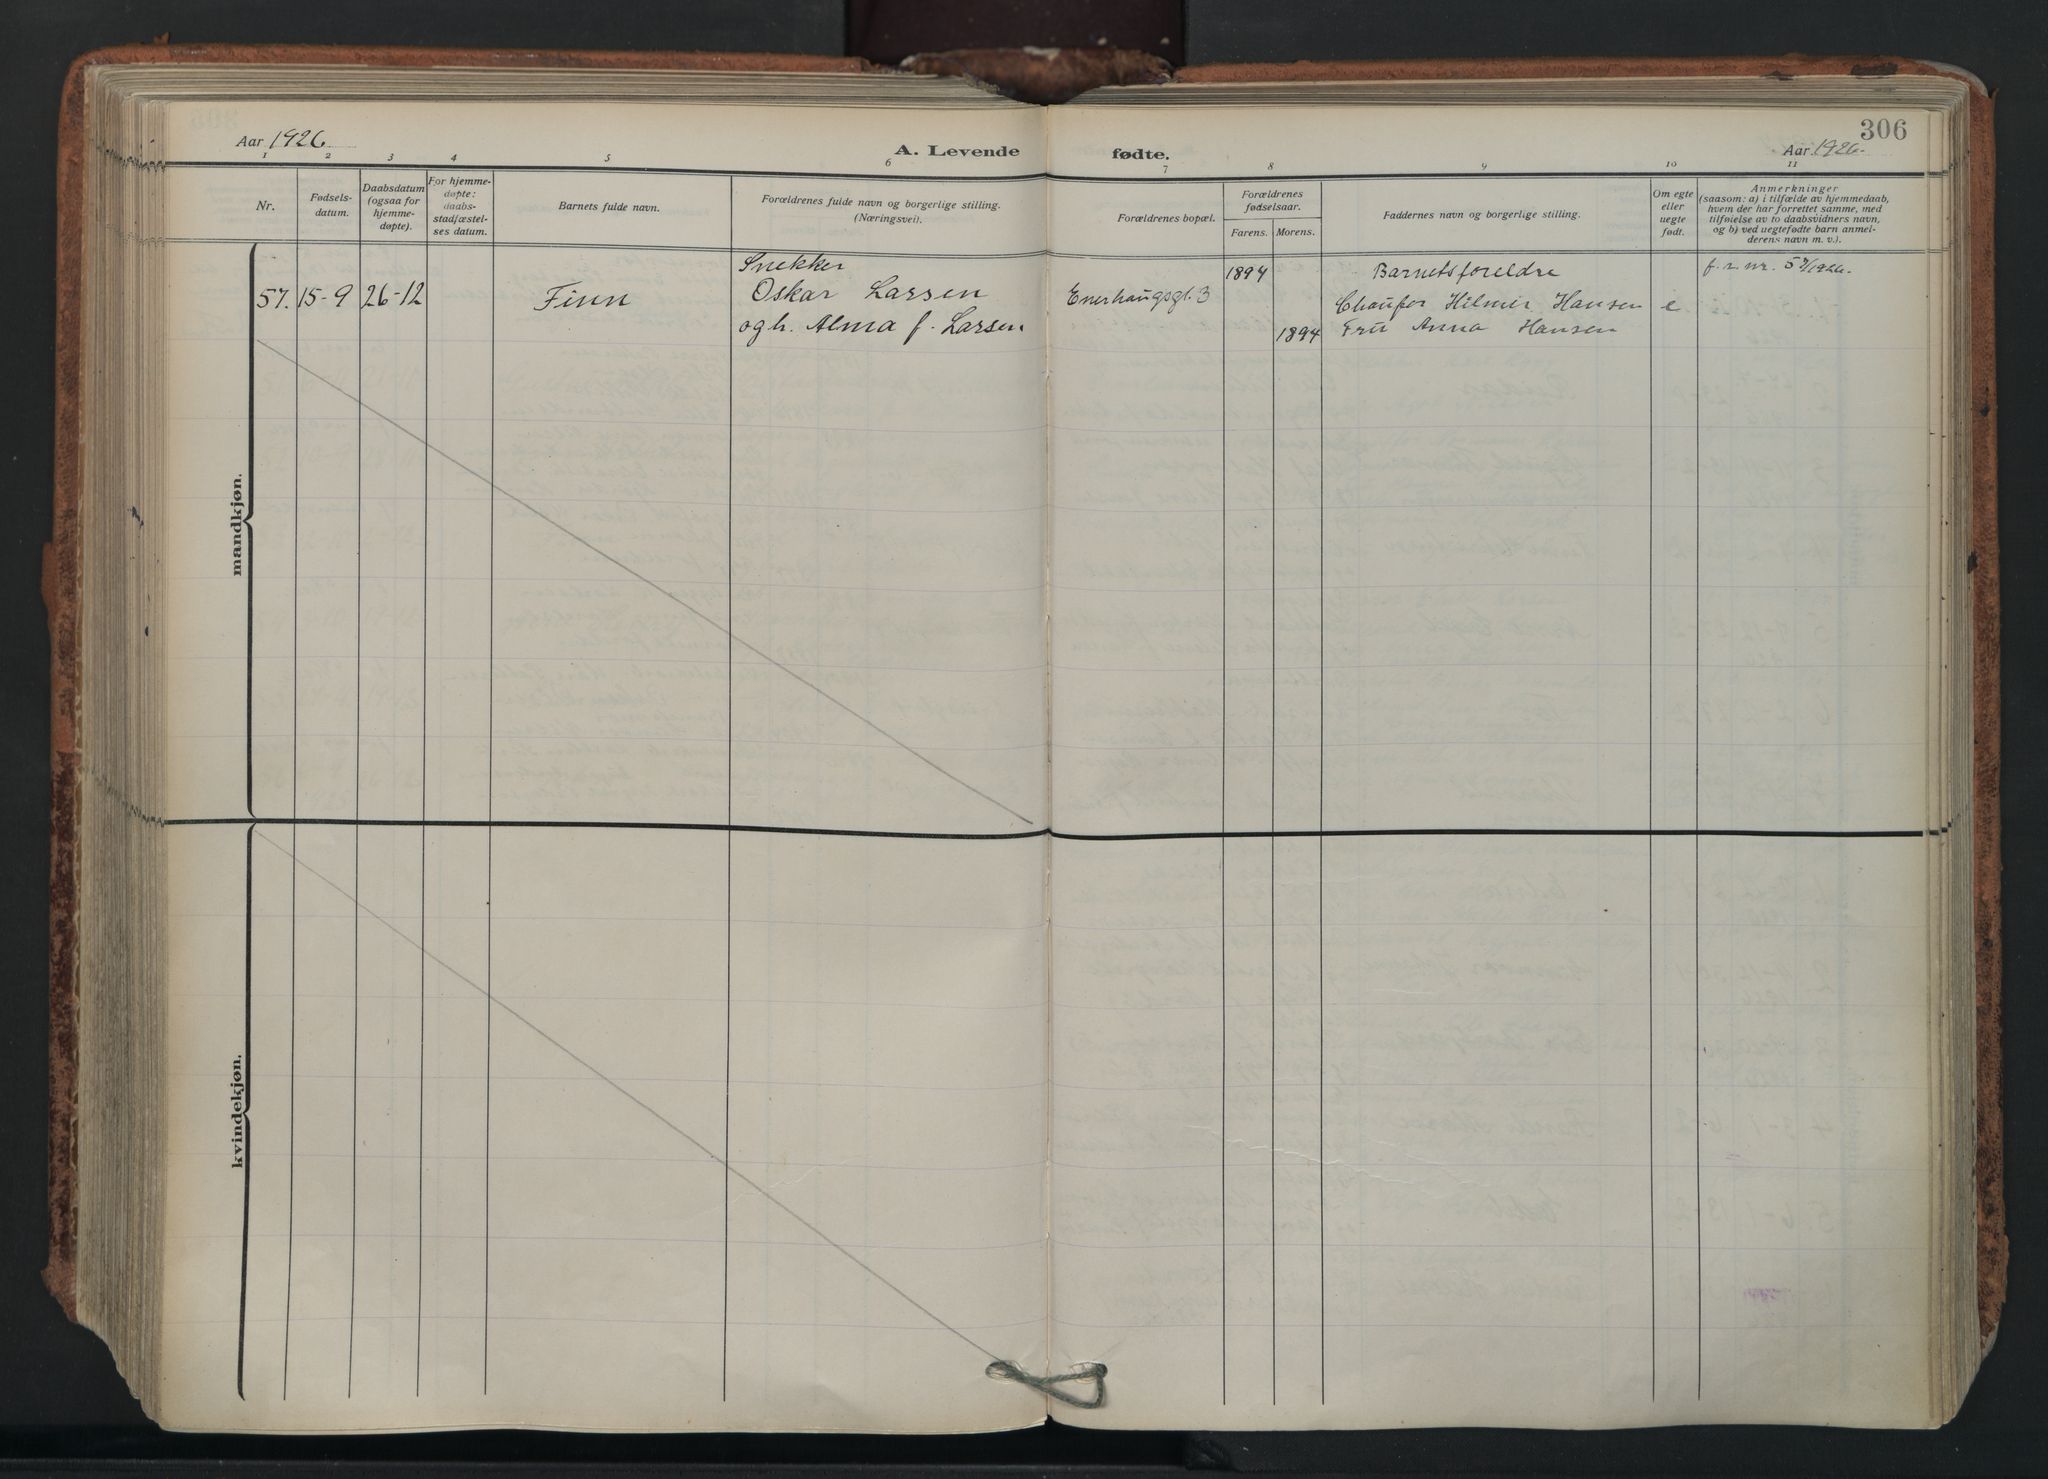 306
Aar 1926
A. Levende fødte.
Aar 1926
1 2 3 4 5 6 7 8 9 10 11
Nr.
Fødsels-
datum.
Daabsdatum
(ogsaa for
hjemme-
døpte).
For hjemme-
døpte:
daabs-
stadfæstel-
ses datum.
Barnets fulde navn.
Forældrenes fulde navn og borgerlige stilling.
(Næringsvei).
Forældrenes bopæl.
Forældrenes
fødselsaar.
Farens. Morens.
Faddernes navn og borgerlige stilling.
Om egte
eller
uegte
født.
Anmerkninger
(saasom: a) i tilfælde av hjemmedaab,
hvem der har forrettet samme, med
tilføielse av to daabsvidners navn,
og b) ved uegtefødte barn anmel-
derens navn m. v.).
mandkjøn.
Snekker 1894 Barnets foreldre f. r. nr. 57/1926.
57. 15-9 26-12 Finn Oskar Larsen Enerhaugsgt. 3 Chaufør Hilmer Hansen e
og h. Alma f. Larsen 1894 Fru Anna Hansen
kvindekjøn.